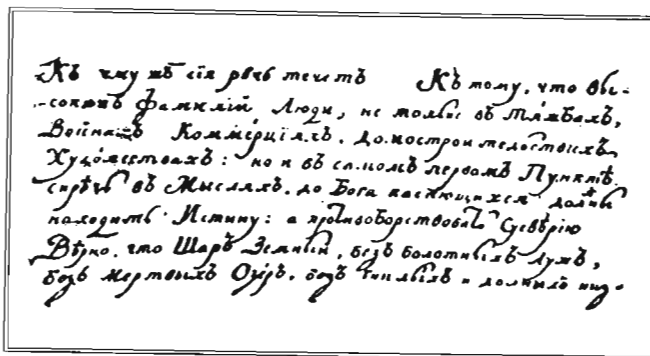 Къ чему жъ сія рѣчь течетъ Къ тому, что вы-
сокихъ Фамилій Люди, не только въ Тяжбахъ,
Войнахъ Коммерціяхъ, домостроителствахъ
Художествахъ: но и въ самомъ первомъ Пунктѣ.
сирѣчь въ Мысляхъ, до Бога касающихся должны
находить Истину: а противоборствовать Суевѣрію
Вѣрно, что Шаръ Земный, безъ болотныхъ лужъ,
безъ Мертвыхъ Озіръ, безъ гнилыхъ и долныхъ низ-